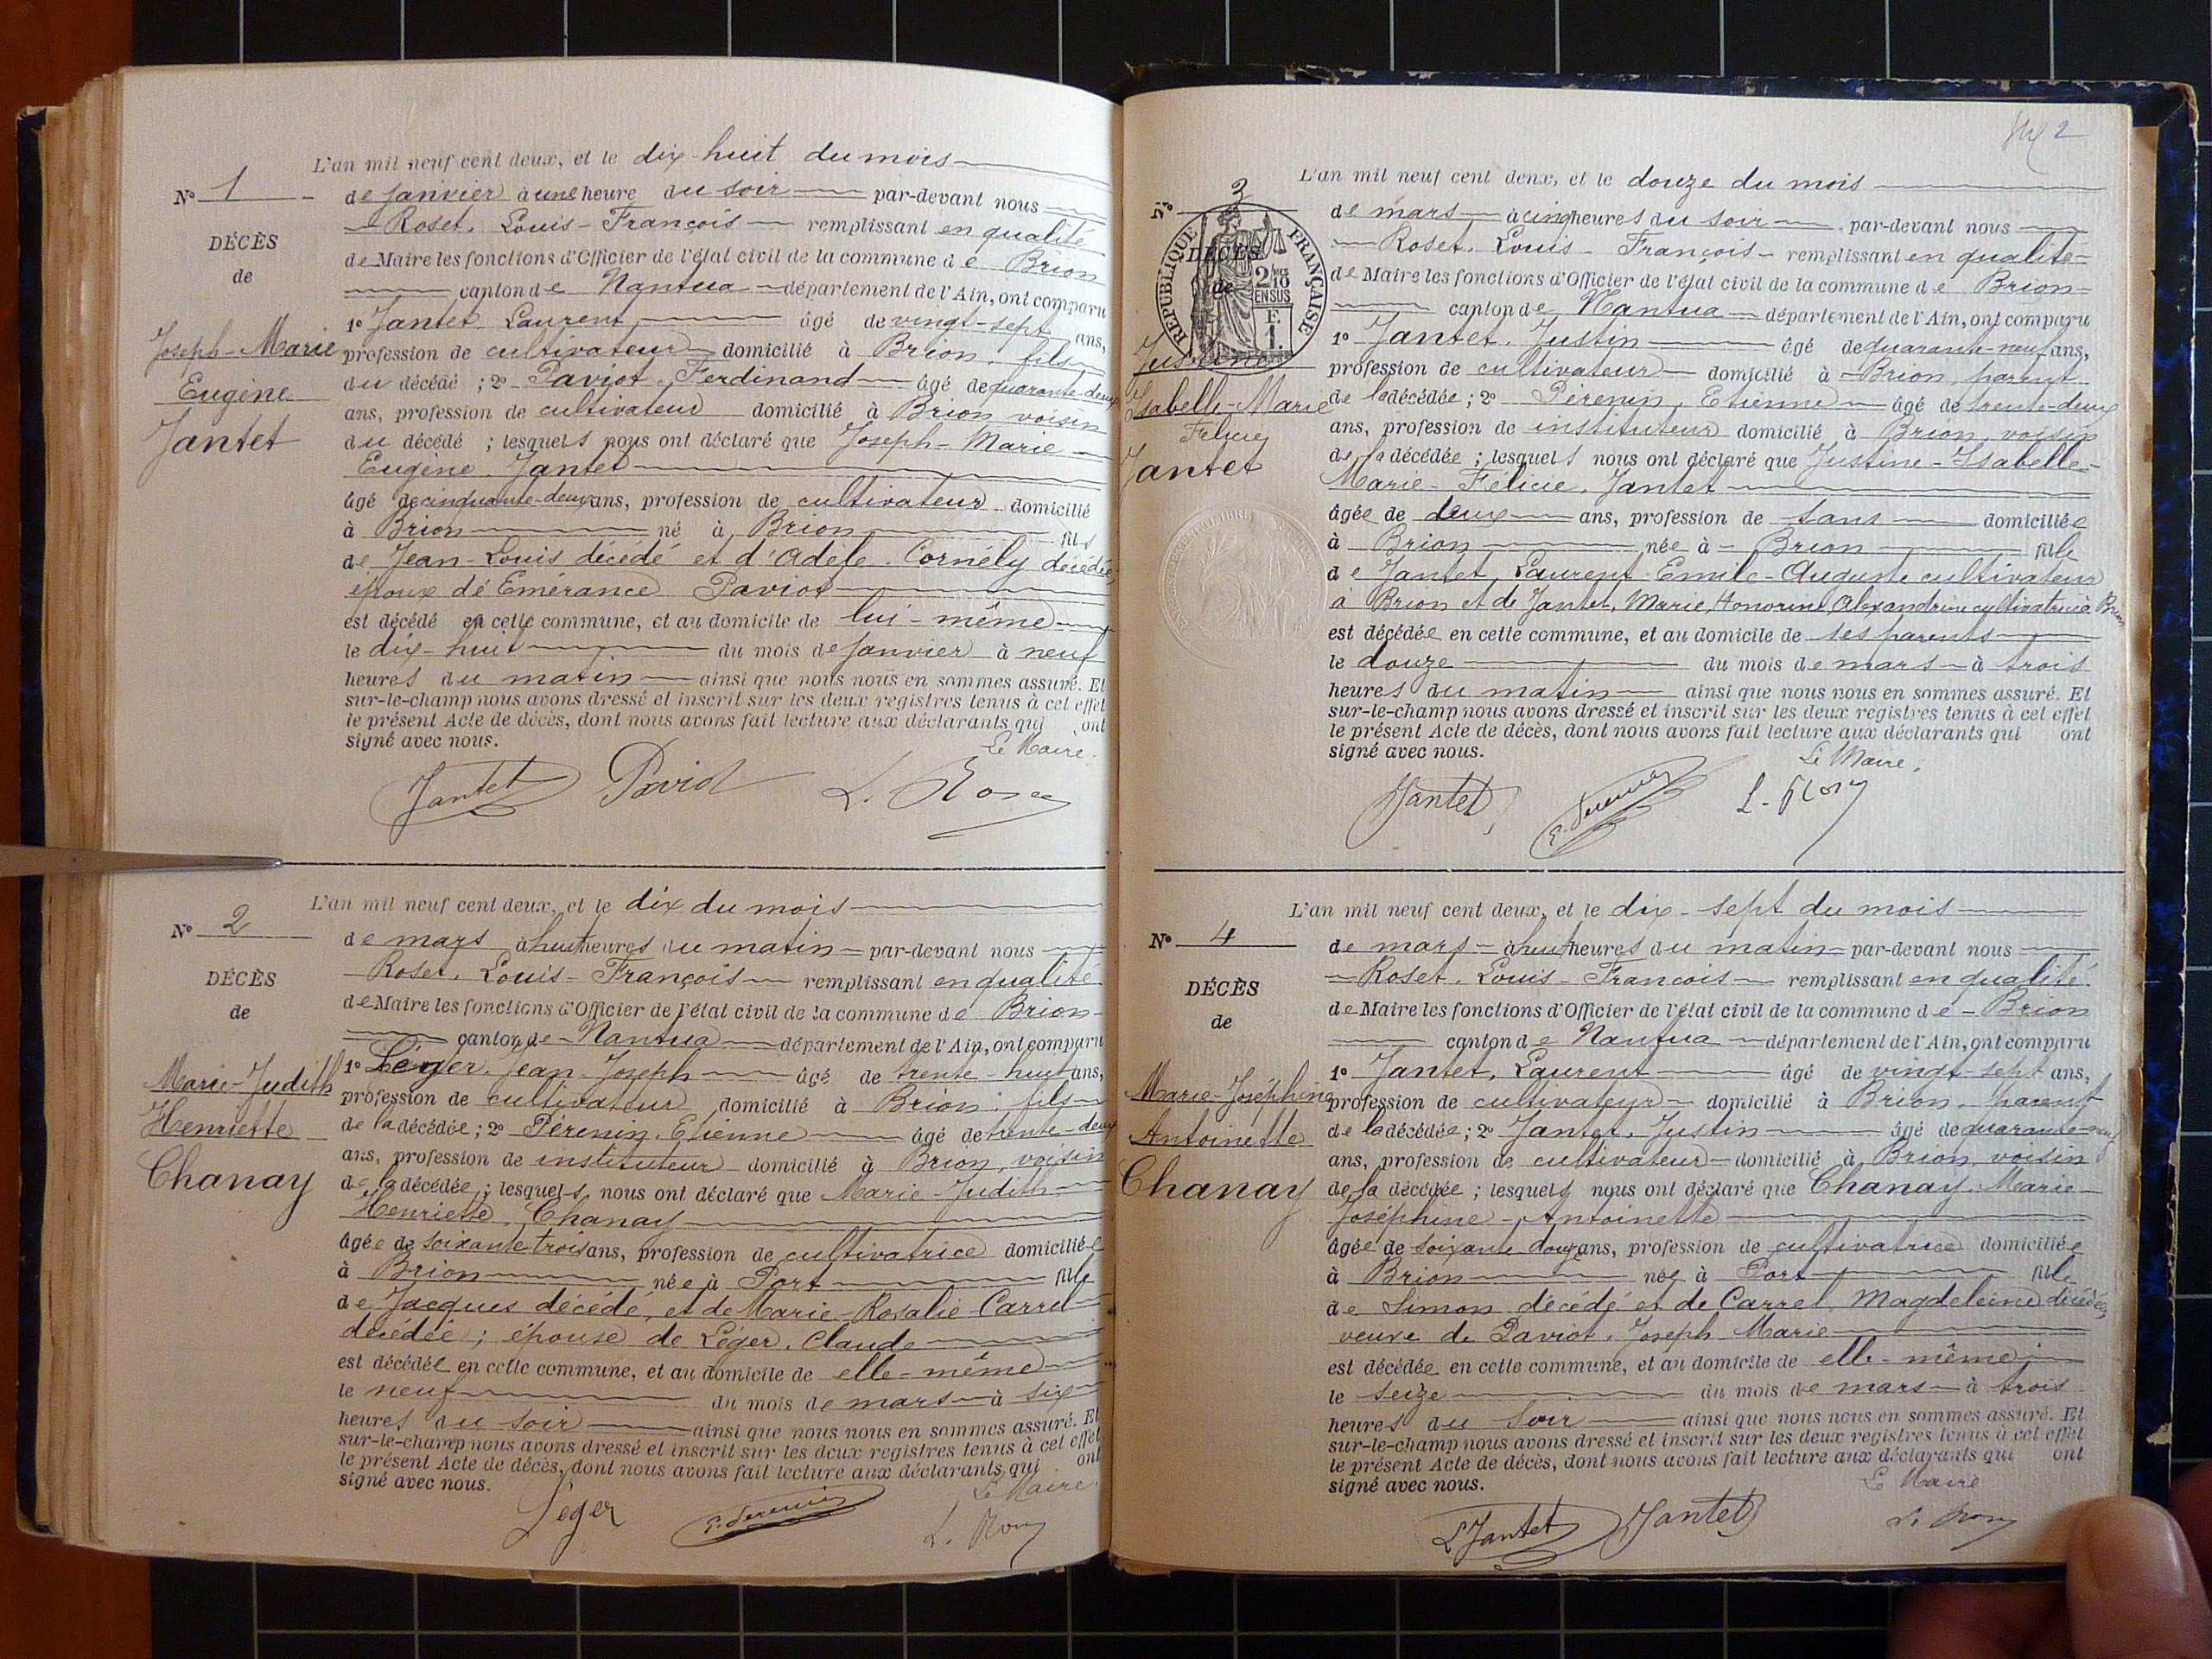 L'an mil neuf cent deux, et le dix-huit du mois
N° 1
de Janvier à une heure du soir par-devant nous
Roset, Louis-François remplissant en qualité
DÉCÈS
de Maire les fonctions d'Officier de l'état civil de la commune de Brion
de
canton de Nantua département de l'Ain, ont comparu
1° Jantet Laurent âgé de vingt-sept ans,
Joseph-Marie
profession de cultivateur domicilié à Brion, fils
Eugène
du décédé ; 2° Paviot, Ferdinand âgé de quarante-deux
ans, profession de cultivateur domicilié à Brion voisin
Jantet
du décédé ; lesquels nous ont déclaré que Joseph-Marie
Eugène Jantet
âgé de cinquante-deux ans, profession de cultivateur domicilié
à Brion né à Brion fils
de Jean-Louis décédé et d'Adèle Cornély décédée
époux de Emérance Paviot
est décédé en cette commune, et au domicile de lui-même
le dix-huit du mois de Janvier à neuf
heures du matin ainsi que nous nous en sommes assuré. Et
sur-le-champ nous avons dressé et inscrit sur les deux registres tenus à cet effet
le présent Acte de décès, dont nous avons fait lecture aux déclarants qui ont
signé avec nous.
Le Maire.
Jantet Paviot L. Roset
L'an mil neuf cent deux, et le dix du mois
N° 2
de mars à huit heures du matin par-devant nous
Roset, Louis-François remplissant en qualité
DÉCÈS
de Maire les fonctions d'Officier de l'état civil de la commune de Brion
de
canton de Nantua département de l'Ain, ont comparu
1° Léger, Jean-Joseph âgé de trente-huit ans,
Marie-Judith
profession de cultivateur domicilié à Brion, fils
Henriette
de la décédée ; 2° Pérenin, Etienne âgé de trente-deux
ans, profession de instituteur domicilié à Brion, voisin
Chanay
de la décédée ; lesquels nous ont déclaré que Marie-Judith
Henriette, Chanay
âgée de soixante trois ans, profession de cultivatrice domiciliée
à Brion née à Port fille
de Jacques décédé, et de Marie-Rosalie Carrel
décédée ; épouse de Léger, Claude
est décédée en cette commune, et au domicile de elle-même
le neuf du mois de mars à six
heures du soir ainsi que nous nous en sommes assuré. Et
sur-le-champ nous avons dressé et inscrit sur les deux registres tenus à cet effet
le présent Acte de décès, dont nous avons fait lecture aux déclarants qui ont
signé avec nous.
Le Maire.
Léger E. Perenin L. Roset
2
L'an mil neuf cent deux, et le douze du mois
N° 3
de mars à cinq heures du soir par-devant nous
Roset, Louis-François remplissant en qualité
RÉPUBLIQUE FRANÇAISE
DÉCÈS
2/10 EN SUS
F. 1.
de Maire les fonctions d'Officier de l'état civil de la commune de Brion
de
canton de Nantua département de l'Ain, ont comparu
1° Jantet, Justin âgé de quarante-neuf ans,
Justine
profession de cultivateur domicilié à Brion, parent
Isabelle-Marie
de la décédée ; 2° Pérenin, Etienne âgé de trente-deux
Félicie
ans, profession de instituteur domicilié à Brion, voisin
Jantet
de la décédée ; lesquels nous ont déclaré que Justine-Isabelle-
Marie-Félicie, Jantet
âgée de deux ans, profession de sans domiciliée
à Brion née à Brion fille
de Jantet, Laurent-Emile-Auguste cultivateur
à Brion et de Jantet, Marie, Honorine, Alexandrine cultivatrice à Brion
est décédée en cette commune, et au domicile de ses parents
le douze du mois de mars à trois
heures du matin ainsi que nous nous en sommes assuré. Et
sur-le-champ nous avons dressé et inscrit sur les deux registres tenus à cet effet
le présent Acte de décès, dont nous avons fait lecture aux déclarants qui ont
signé avec nous.
Le Maire,
Jantet E. Perenin L. Roset
L'an mil neuf cent deux, et le dix-sept du mois
N° 4
de mars à huit heures du matin par-devant nous
Roset, Louis-François remplissant en qualité
DÉCÈS
de Maire les fonctions d'Officier de l'état civil de la commune de Brion
de
canton de Nantua département de l'Ain, ont comparu
1° Jantet, Laurent âgé de vingt-sept ans,
Marie-Joséphine
profession de cultivateur domicilié à Brion, parent
Antoinette
de la décédée ; 2° Jantet, Justin âgé de quarante-neuf
ans, profession de cultivateur domicilié à Brion, voisin
Chanay
de la décédée ; lesquels nous ont déclaré que Chanay, Marie-
Joséphine-Antoinette
âgée de soixante douze ans, profession de cultivatrice domiciliée
à Brion née à Port fille
de Simon décédé et de Carrel, Magdeleine décédée
veuve de Paviot, Joseph Marie
est décédée en cette commune, et au domicile de elle-même
le seize du mois de mars à trois
heures du soir ainsi que nous nous en sommes assuré. Et
sur-le-champ nous avons dressé et inscrit sur les deux registres tenus à cet effet
le présent Acte de décès, dont nous avons fait lecture aux déclarants qui ont
signé avec nous.
Le Maire
L Jantet Jantet L. Roset